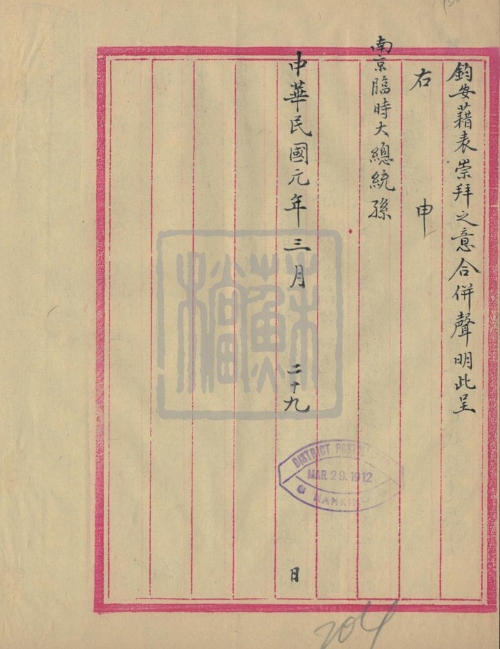 鈞安藉表崇拜之意合併聲明此呈
右申
南京臨時大總統孫
中華民國元年三月二十九日
DISTRICT POST
MAR 29. 1912
NANKING
204
蘇檔